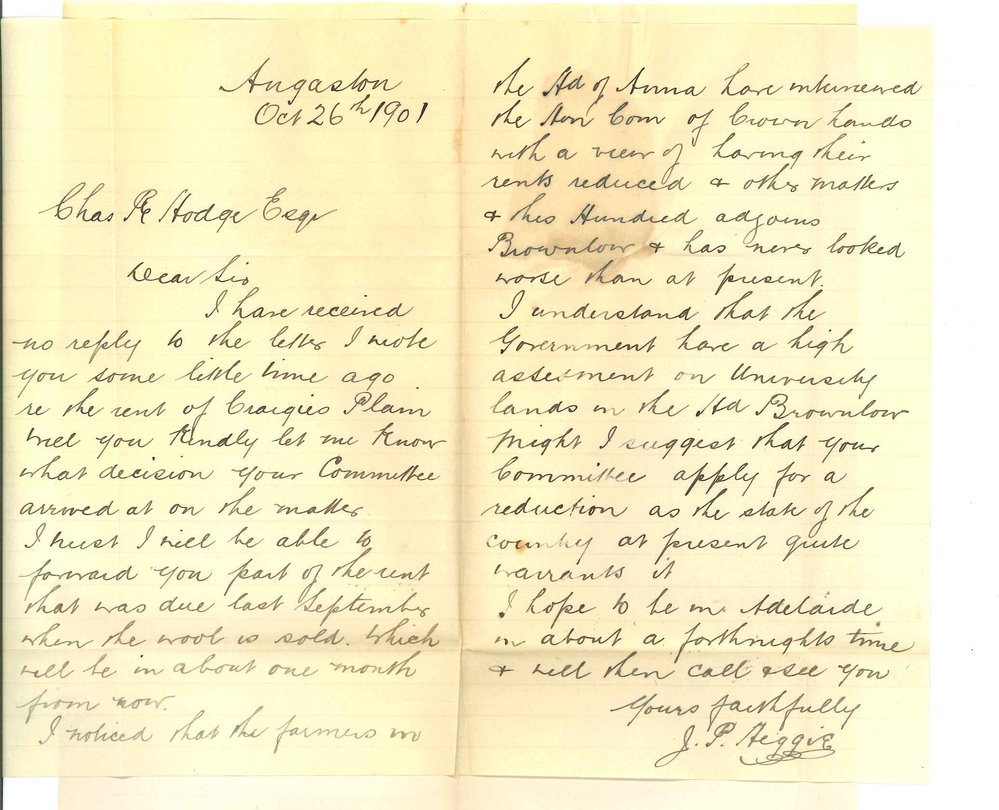 Angaston
Oct 26th 1901
Chas R Hodge Esqr
Dear Sir
I have received
no reply to the letter I wrote
you some little time ago
re the rent of Craigies Plain
Will you Kindly let me Know
what decision your Committee
arrived at on the matter
I trust I will be able to
forward you part of the rent
that was due last September
when the wool is sold. Which
will be in about one month
from now.
I noticed that the farmers in
the Hd of Anna have interviewed
the Hon Com of Crown Lands
with a view of having their
rents reduced & other matters
& this Hundred adjoins
Brownlow & has never looked
worse than at present.
I understand that the
Government have a high
assesment on University
lands in the Hd Brownlow
Might I suggest that your
Committee apply for a
reduction as the state of the
country at present quite
warrants it
I hope to be in Adelaide
in about a forthnights time
& will then call & see you
Yours faithfully
J. P. Heggie